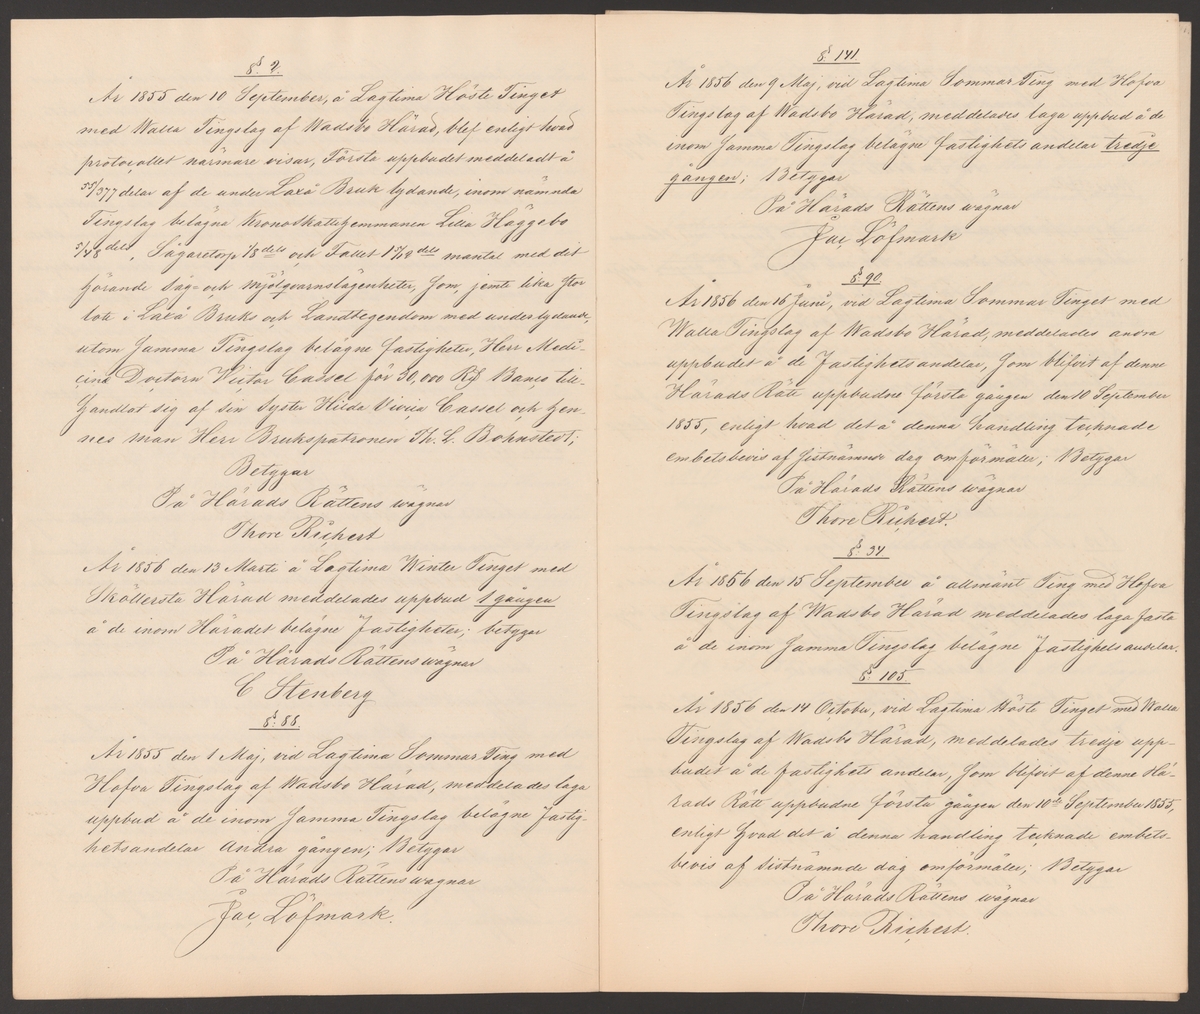 §. 2.
År 1855 den 10 September, å Lagtima Höste Tinget
med Walla Tingslag af Wadsbo Härad, blef enligt hvad
protocollet närmare visar, Första uppbudet meddeladt å
55/377 delar af de under Laxå Bruk lydande, inom nämnda
Tingslag belägna Kronoskattehemmanen Lilla Häggebo
5/48 dels, Sågaretorp 1/8 dels och Fallet 15/12 dels mantal med dit
hörande Såg- och Mjölqvarnslägenheter, som, jemte lika stor
lott i Laxå Bruks och Landtegendom med underlydande,
utom samma Tingslag belägne fastigheter, Herr Medi-
cinæ Doctorn Victor Cassel för 30,000 Rd Banco till-
handlat sig af sin Syster Hilda Vivica Cassel och hen-
nes man Herr Brukspatronen Th. L. Bohnstedt;
Betygar
På Härads Rättens wägnar
Thore Richert
År 1856 den 13 Marti å Lagtima Winter Tinget med
Skyllersta Härad meddelades uppbud 1 gången
å de inom Häradet belägne Fastigheter; betygar
På Härads Rättens wägnar
C Stenberg
§. 88.
År 1855 den 1 Maj, vid Lagtima Sommar Ting med
Hofva Tingslag af Wadsbo Härad, meddelades laga
uppbud å de inom samma Tingslag belägne Fastig-
hetsandelar Andra gången; Betygar
På Härads Rättens wägnar
Jac. Löfmark.
§. 141.
År 1856 den 9 Maj, vid Lagtima Sommar Ting med Hofva
Tingslag af Wadsbo Härad, meddelades laga uppbud å de
inom samma Tingslag belägne fastighets andelar tredje
gången; Betygar
På Härads Rättens wägnar
Jac Löfmark
§. 90.
År 1856 den 16 Juni, vid Lagtima Sommar Tinget med
Walla Tingslag af Wadsbo Härad, meddelades andra
uppbudet å de Fastighetsandelar, som blifvit af denne
Härads Rätt uppbudne första gången den 10 September
1855, enligt hvad det å denna handling tecknade
embetsbevis af sistnämnde dag omförmäler; Betygar
På Härads Rättens wägnar
Thore Richert.
§. 34
År 1856 den 15 September å allmänt Ting med Hofva
Tingslag af Wadsbo Härad meddelades laga fasta
å de inom samma Tingslag belägne Fastighetsandelar.
§. 105.
År 1856 den 14 October, vid Lagtima Höste Tinget med Walla
Tingslag af Wadsbo Härad, meddelades tredje upp-
budet å de fastighets andelar, som blifvit af denne Hä-
rads Rätt uppbudne första gången den 10de September 1855,
enligt hvad det å denna handling tecknade embets-
bevis af sistnämnde dag omförmäler; Betygar
På Härads Rättens wägnar
Thore Richert.